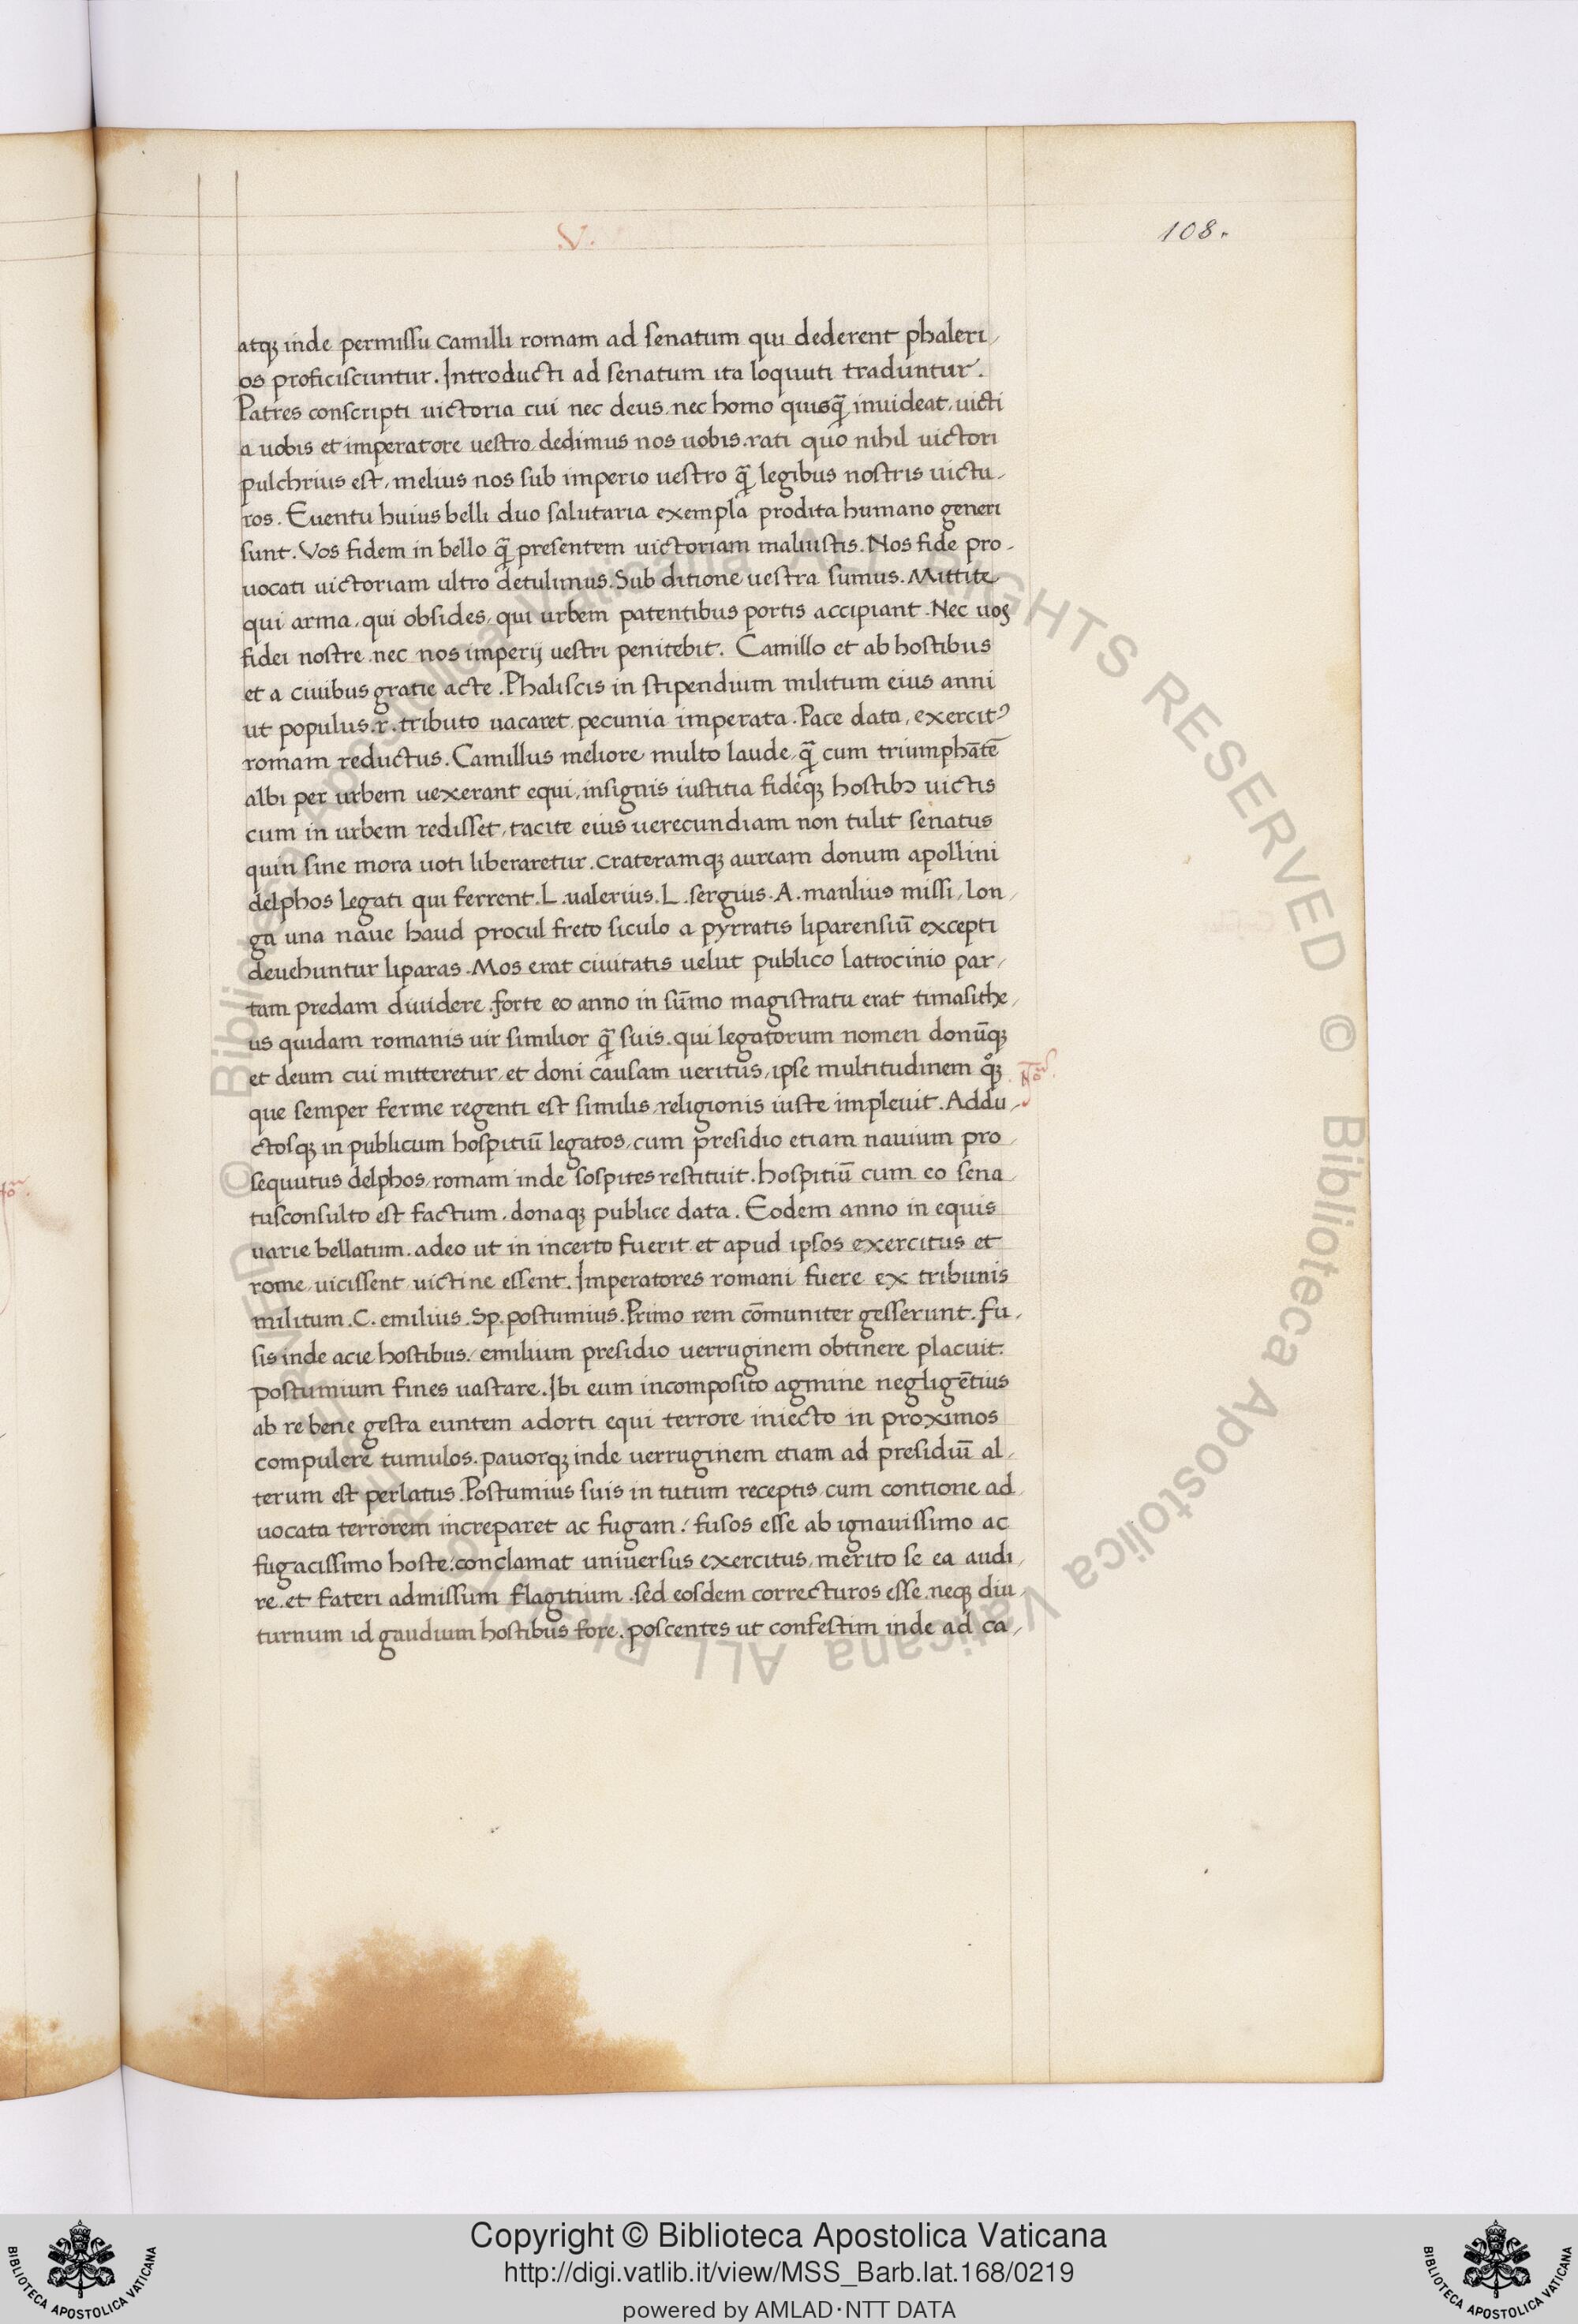 .V.
108.
atqꝫ inde permissu camilli romam ad senatum qui dederent phaleri/
os proficiscuntur. Introducti ad senatum ita loquuti traduntur.
Patres conscripti uictoria cui nec deus nec homo quisq̄ inuideat, uicti
a uobis et imperatore uestro dedimus nos uobis. rati quo nihil uictori
pulchrius est, melius nos sub imperio uestro q̄ legibus nostris uictu/
ros. Euentu huius belli duo salutaria exempla prodita humano generi
sunt. Vos fidem in bello q̄ presentem uictoriam maluistis. Nos fide pro/
uocati uictoriam ultro detulimus. Sub ditione uestra sumus. Mittite
qui arma, qui obsides, qui urbem patentibus portis accipiant. Nec uos
fidei nostre nec nos imperij uestri penitebit. Camillo et ab hostibus
et a ciuibus gratie acte. Phaliscis in stipendium militum eius anni
ut populus .r. tributo uacaret pecunia imperata. Pace data, exercitꝰ
romam reductus. Camillus meliore multo laude, q̄ cum triumphātē
albi per urbem uexerant equi, insignis iustitia fideqꝫ hostibꝫ uictis
cum in urbem redisset, tacite eius uerecundiam non tulit senatus
quin sine mora uoti liberaretur. crateramqꝫ auream donum apollini
delphos legati qui ferrent. L. ualerius. L. sergius. A. manlius missi, lon/
ga una naue haud procul freto siculo a pyrratis liparensiū excepti
deuehuntur liparas. Mos erat ciuitatis uelut publico latrocinio par/
tam predam diuidere. forte eo anno in sūmo magistratu erat timasithe/
us quidam romanis uir similior q̄ suis. qui legatorum nomen donūqꝫ
et deum cui mitteretur, et doni causam ueritus, ipse multitudinem qͦꝫ
que semper ferme regenti est similis religionis iuste impleuit. Addu/
ctosqꝫ in publicum hospitiū legatos, cum presidio etiam nauium pro/
sequutus delphos, romam inde sospites restituit. hospitiū cum eo sena/
tusconsulto est factum. donaqꝫ publice data. Eodem anno in equis
uarie bellatum. adeo ut in incerto fuerit et apud ipsos exercitus et
rome, uicissent uictine essent. Imperatores romani fuere ex tribunis
militum. C. emilius. Sp. postumius. Primo rem cōmuniter gesserunt. fu/
sis inde acie hostibus, emilium presidio uerruginem obtinere placuit.
postumium fines uastare. Ibi eum incomposito agmine negligētius
ab re bene gesta euntem adorti equi terrore iniecto in proximos
compulere tumulos. pauorqꝫ inde uerruginem etiam ad presidiū al/
terum est perlatus. Postumius suis in tutum receptis cum contione ad/
uocata terrorem increparet ac fugam, fusos esse ab ignauissimo ac
fugacissimo hoste: conclamat uniuersus exercitus, merito se ea audi/
re et fateri admissum flagitium. sed eosdem correcturos esse. neqꝫ diu/
turnum id gaudium hostibus fore. poscentes ut confestim inde ad ca/
© Biblioteca Apostolica Vaticana ALL RIGHTS RESERVED © Biblioteca Apostolica Vaticana ALL RIGHTS RESERVED
Copyright © Biblioteca Apostolica Vaticana
http://digi.vatlib.it/view/MSS_Barb.lat.168/0219
powered by AMLAD·NTT DATA
BIBLIOTECA APOSTOLICA VATICANA
BIBLIOTECA APOSTOLICA VATICANA